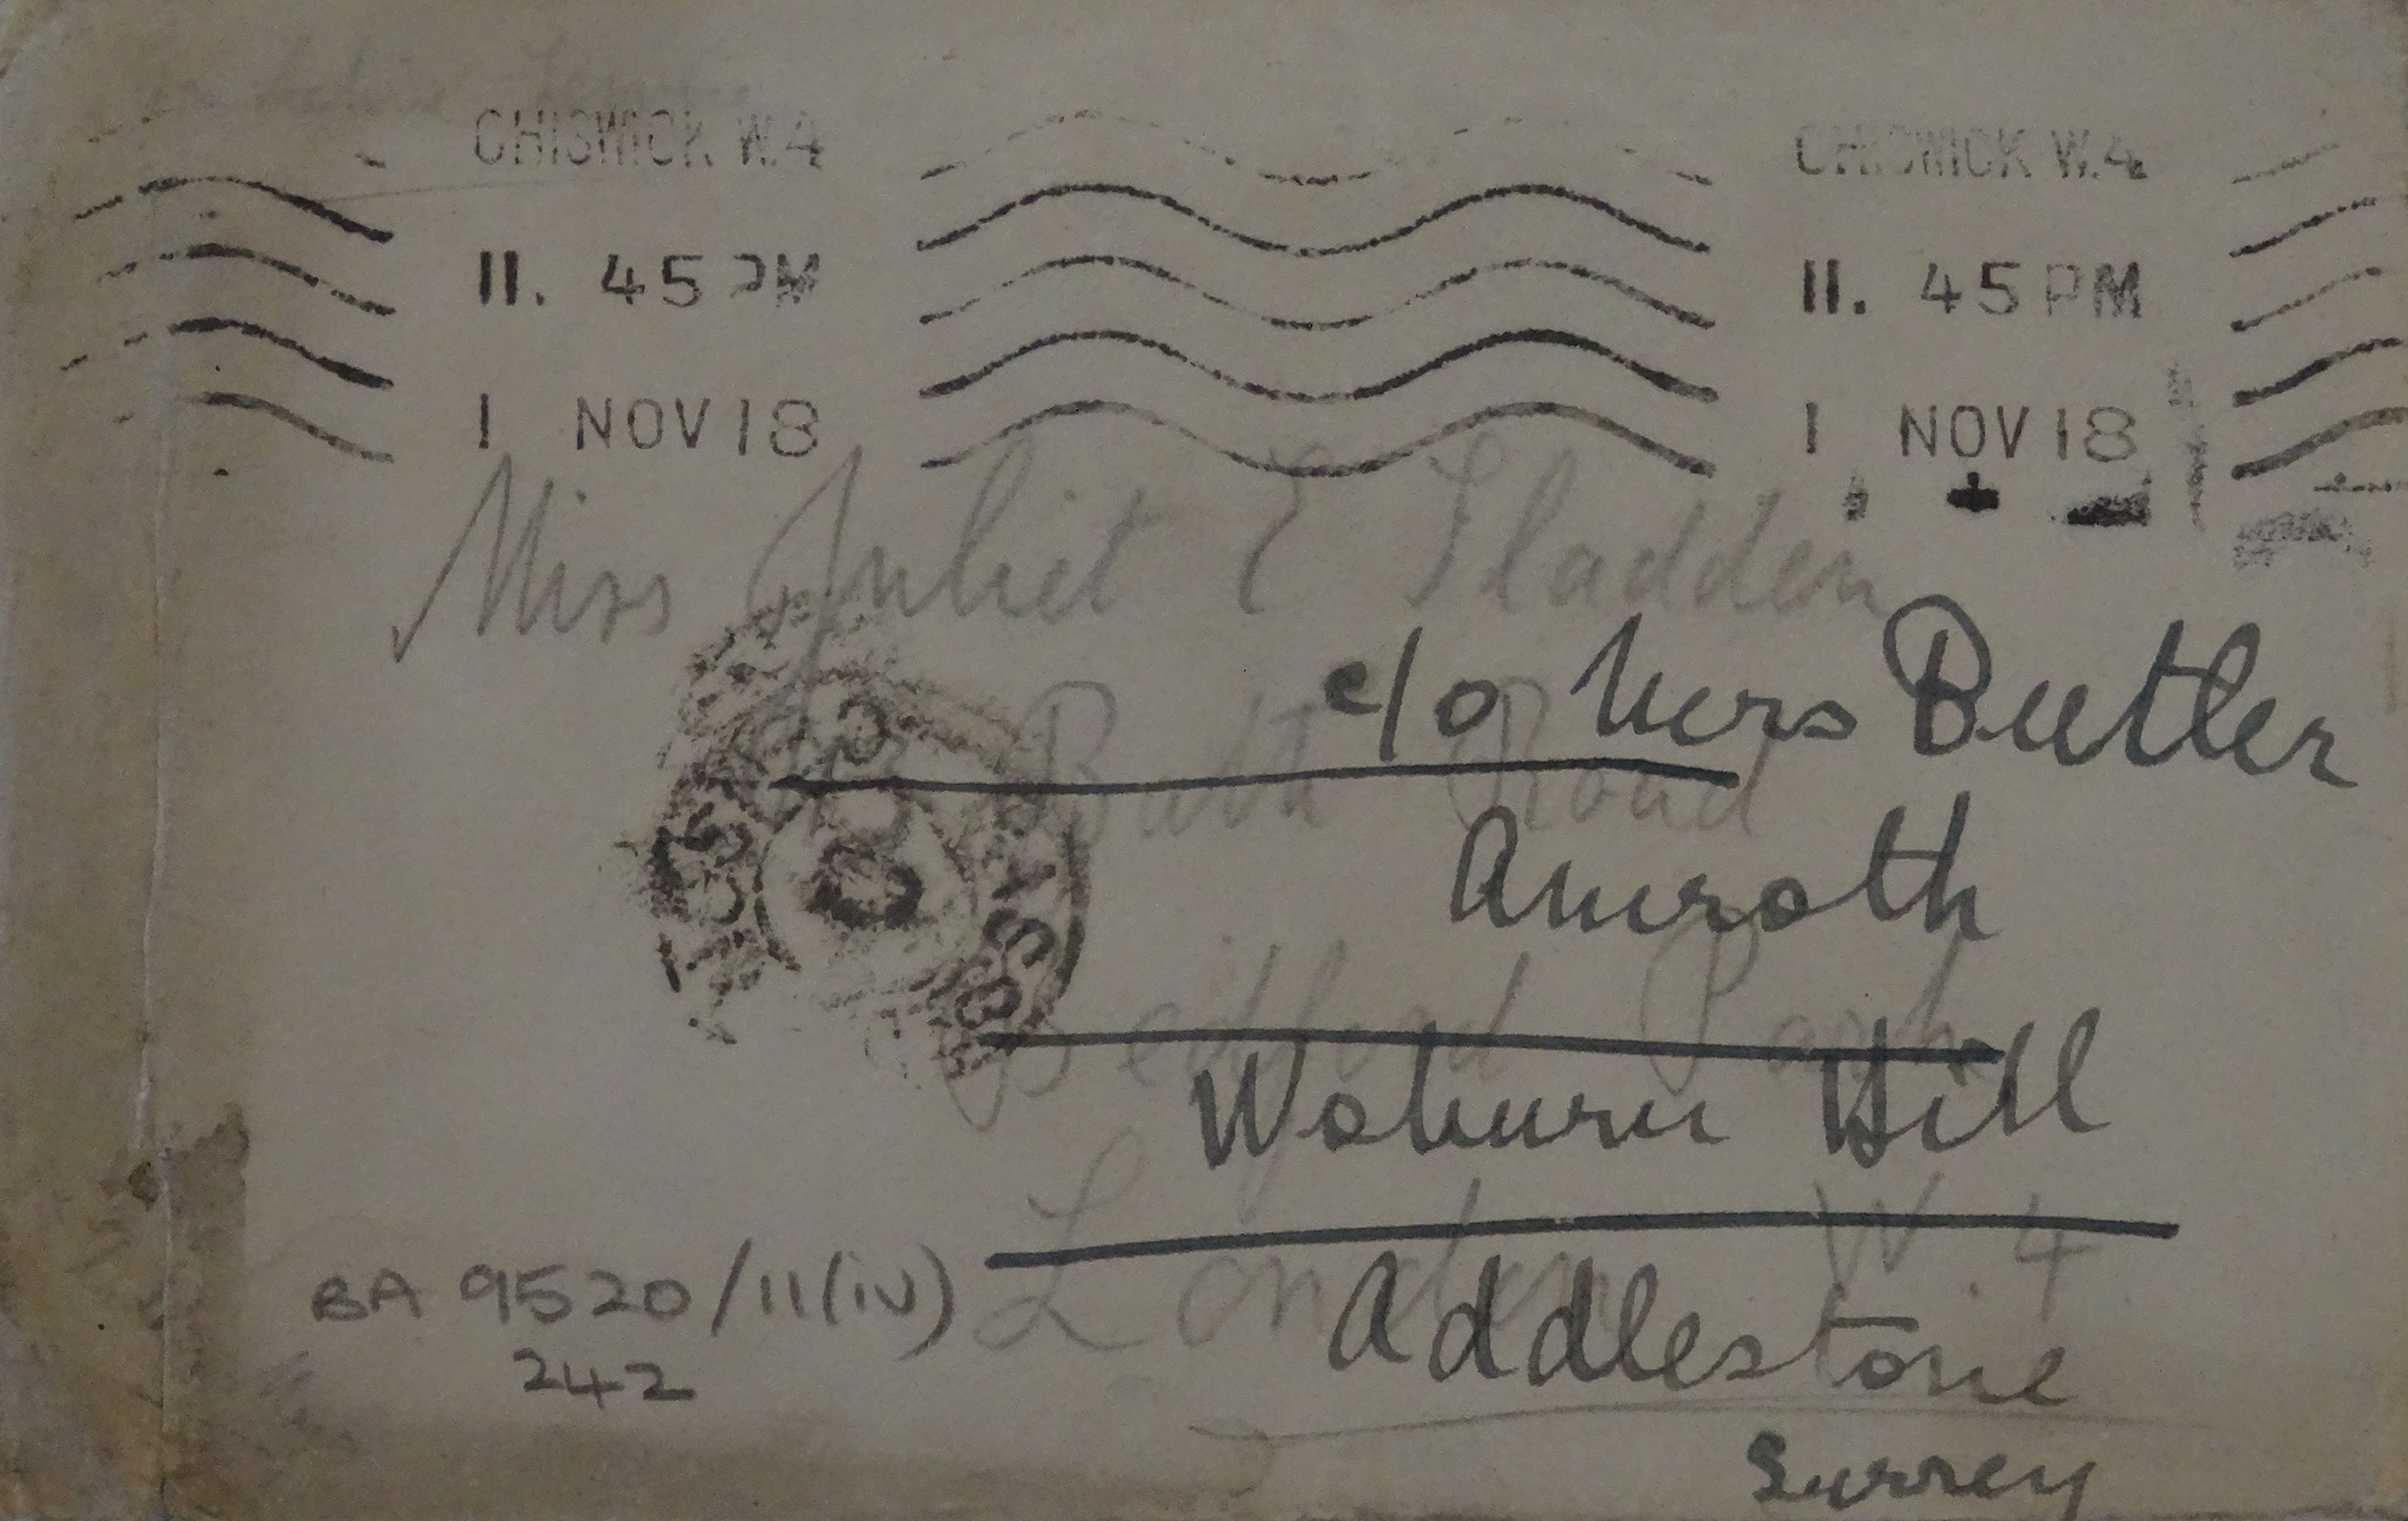 On Active Service
CHISWICK W.4 CHISWICK W.4
11. 45 PM 11. 45 PM
1 NOV 18 1 NOV 18
Miss Juliet E Sladden
c/o Mrs Butler
Bath Road
Amroth
Bedford Park
Woburn Hill
London W. 4
Addlestone
Surrey
BA 9520/11(iv)
242